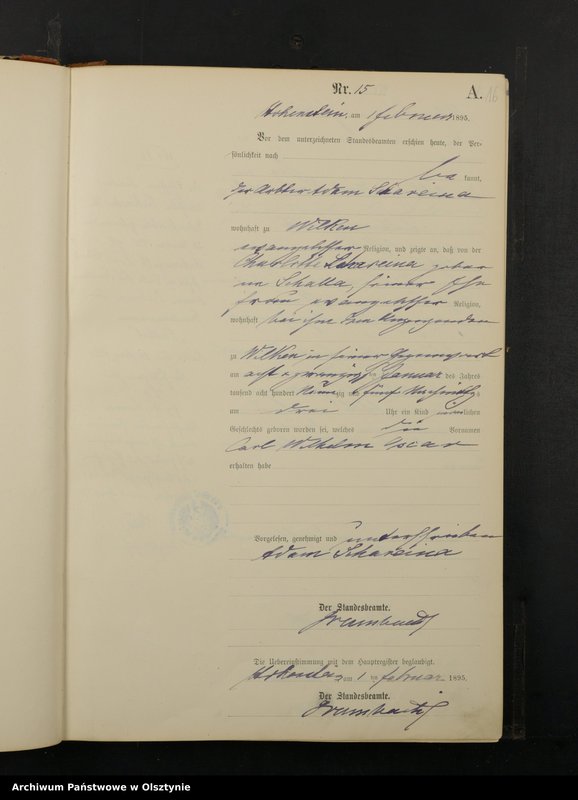 Nr. 15
A. 16
am 1 Februar 1895.
Vor dem unterzeichneten Standesbeamten erschien heute, der Per-
sönlichkeit nach
be kannt,
der Adam Skareina
wohnhaft zu Wilken
evangelischer Religion, und zeigte an, daß von der
Charlotte Skareina gebor
ne Schalla, seiner Ehe
frau, evangelischer Religion,
wohnhaft bei ihm
zu Wilken in seiner Gegenwart
am acht u. zwanzig ten Januar des Jahres
tausend acht hundert neun zig und fünf Nachmittags
um drei Uhr ein Kind männlichen
Geschlechts geboren worden sei, welches die Vornamen
Carl Wilhelm Oscar
erhalten habe
Vorgelesen, genehmigt und unterschrieben
Adam Skareina
Der Standesbeamte.
Die Uebereinstimmung mit dem Hauptregister beglaubigt.
am 1 ten Februar 1895.
Der Standesbeamte.
Archiwum Państwowe w Olsztynie